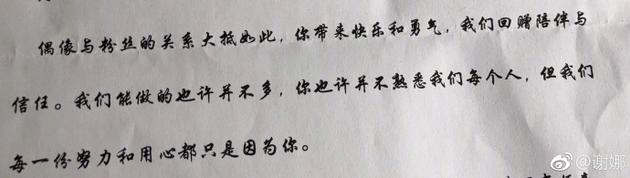 偶像与粉丝的关系大抵如此，你带来快乐和勇气，我们回赠陪伴与
信任。我们能做的也许并不多，你也许并不熟悉我们每个人，但我们
每一份努力和用心都只是因为你。
@谢娜